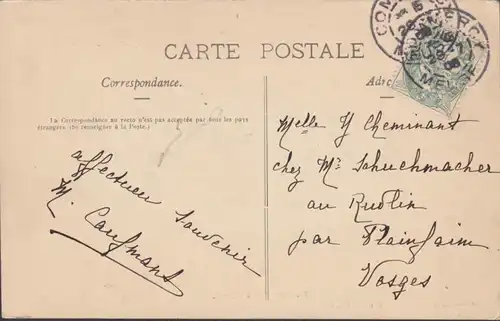 COMMERCY
CARTE POSTALE
Correspondance.
La Correspondance au recto n'est pas acceptée par tous les pays
étrangers (Se renseigner à la Poste.)
affectueux Souvenir
M. Caufmant
Melle Y Cheminant
chez Mr Schuchmacher
au Rudlin
par Plainfaim
Vosges